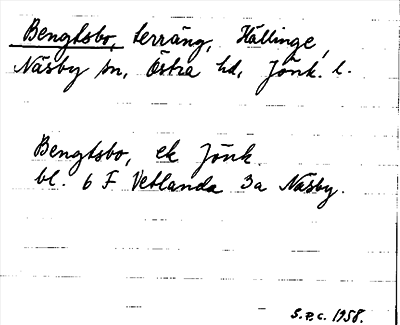 Bengtsbo, terräng, Hällinge,
Näsby sn, Östra hd, Jönk. l.
Bengtsbo, ek Jönk.
bl. 6 F Vetlanda 3a Näsby.
S.P.C. 1958.